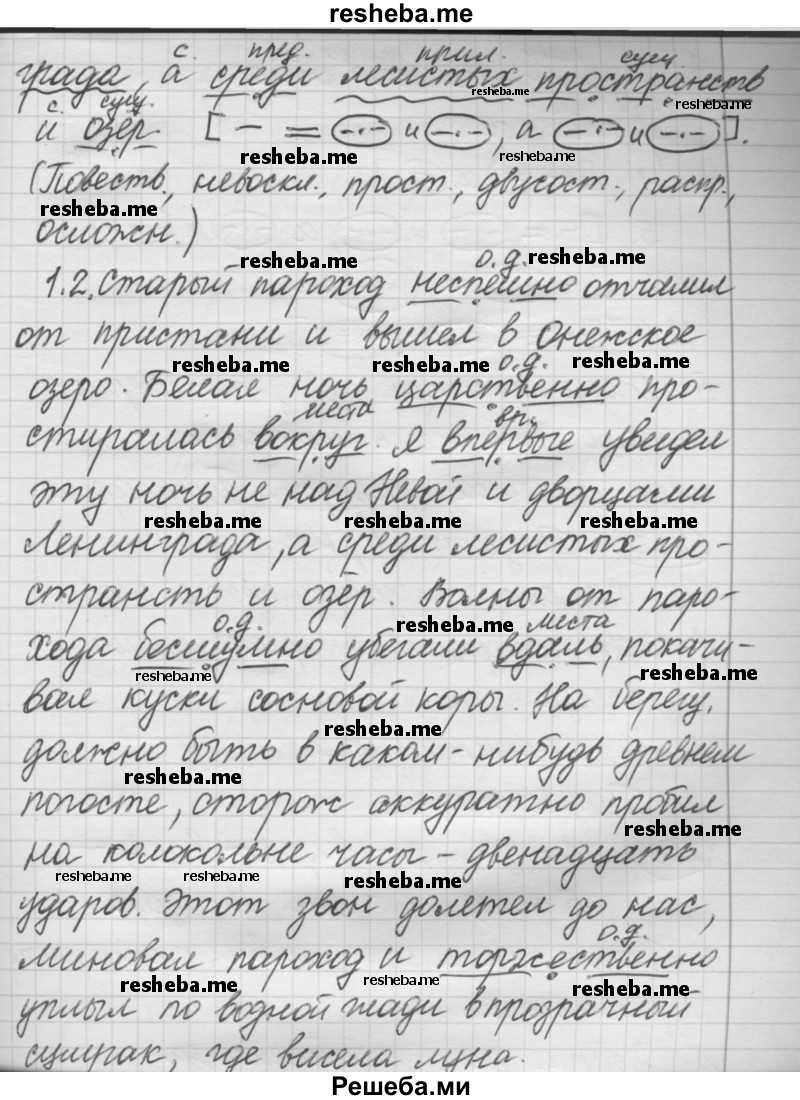 resheba.me
с. пред. прил. сущ.
града, а среди лесистых пространств
resheba.me
resheba.me
с. сущ.
и озёр. [ – = –·–· и –·–, а –·–· и –·–· ].
resheba.me resheba.me
(Повеств., невоскл., прост., двусост., распр.,
resheba.me
осложн.)
resheba.me о.д. resheba.me
1.2. Старый пароход неспешно отчалил
от пристани и вышел в Онежское
resheba.me resheba.me о.д. resheba.me
озеро. Белая ночь царственно про-
места вр.
стиралась вокруг. Я впервые увидел
эту ночь не над Невой и дворцами
resheba.me resheba.me resheba.me
Ленинграда, а среди лесистых про-
странств и озёр. Волны от паро-
о.д. resheba.me места
хода бесшумно убегали вдаль, покачи-
resheba.me resheba.me
вая куски сосновой коры. На берегу,
resheba.me
должно быть в каком-нибудь древнем
resheba.me
погосте, сторож аккуратно пробил
resheba.me
на колокольне часы – двенадцать
resheba.me resheba.me resheba.me
ударов. Этот звон долетел до нас,
о.д.
миновал пароход и торжественно
resheba.me resheba.me resheba.me
уплыл по водной глади в прозрачный
сумрак, где висела луна.
Решеба.ми